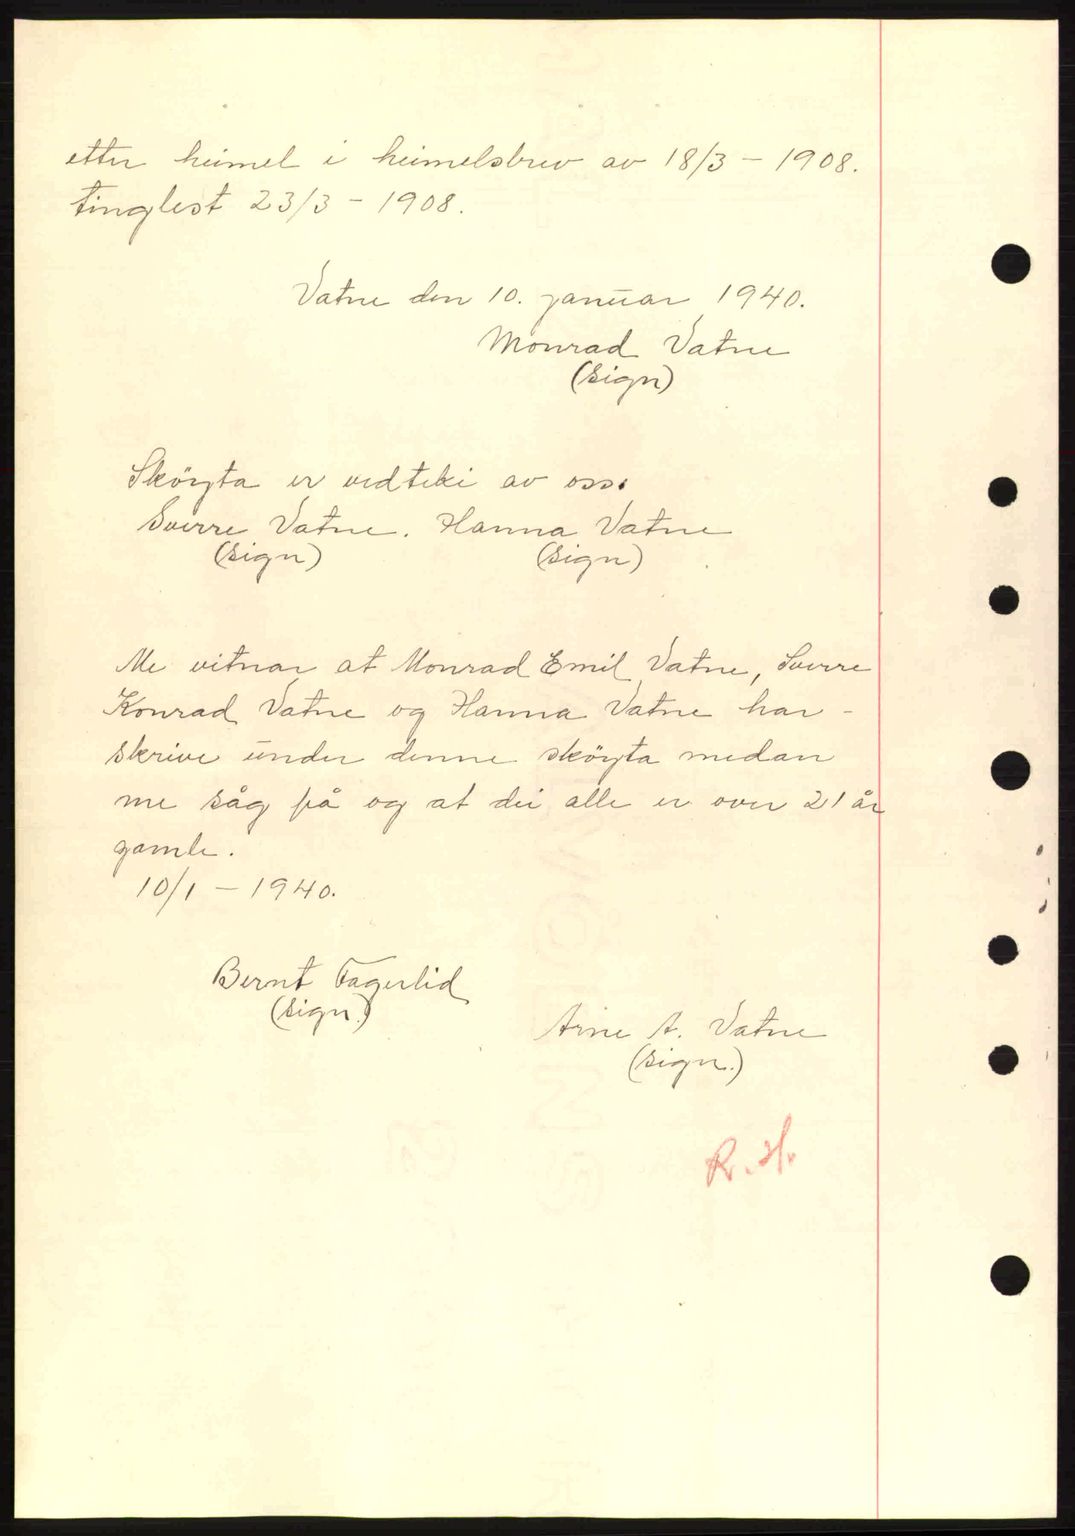 etter heimel i heimelsbrev av 18/3 - 1908.
tinglest 23/3 - 1908.
Vatne den 10. januar 1940.
Monrad Vatne
(sign)
Sköyta er vedteki av oss.
Sverre Vatne. Hanna Vatne
(sign) (sign)
Me vitnar at Monrad Emil Vatne, Sverre
Konrad Vatne og Hanna Vatne har -
skrive under denne sköyta medan
me såg på og at dei alle er over 21 år
gamle.
10/1 - 1940.
Bernt Fagerlid
(sign.)
Arne A. Vatne
(sign.)
R. H.